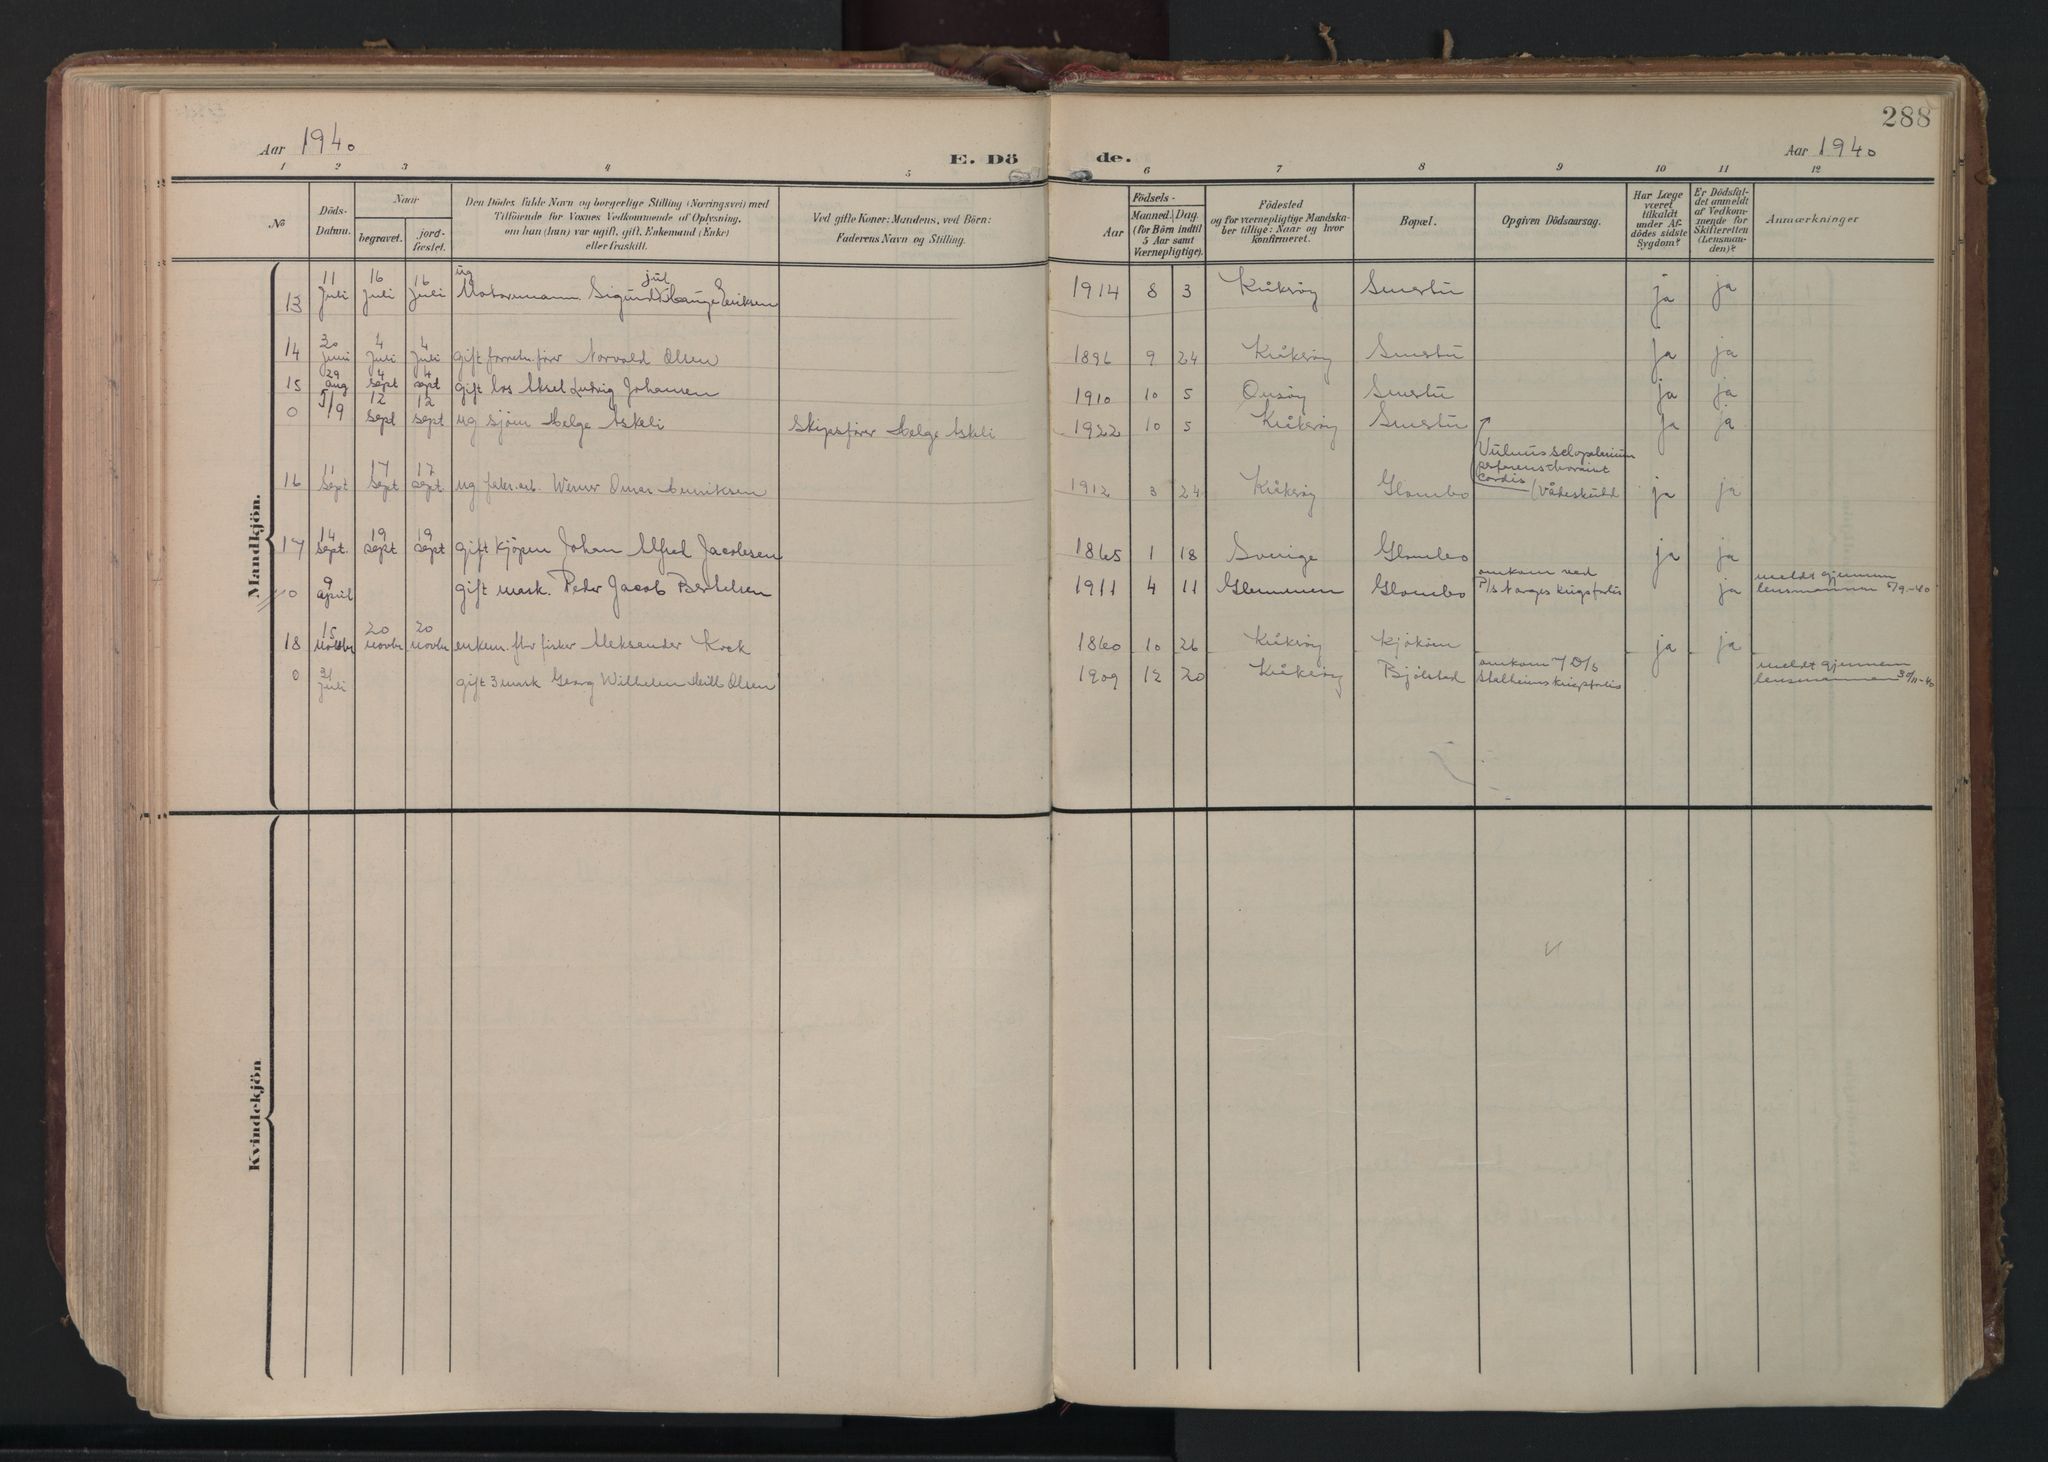 288
Aar 1940
E. Dö
de.
Aar 1940
1 2 3 4 5 6 7 8 9 10 11 12
No
Döds-
Datum.
Naar
begravet.
jord-
fæstet.
Den Dödes fulde Navn og borgerlige Stilling (Næringsvei) med
Tilföiende for Voxnes Vedkommende af Oplysning,
om han (hun) var ugift, gift, Enkemand (Enke)
eller fraskilt.
Ved gifte Koner: Mandens, ved Börn:
Faderens Navn og Stilling.
Födsels-
Aar
Maaned. Dag.
(for Börn indtil
5 Aar samt
Værnepligtige).
Födested
og for værnepligtige Mandska-
ber tillige: Naar og hvor
konfirmeret.
Bopæl.
Opgiven Dödsaarsag.
Har Læge
været
tilkaldt
under Af-
dödes sidste
Sygdom?
Er Dödsfal-
det anmeldt
af Vedkom-
mende for
Skifteretten
(Lensman-
den)?
Anmærkninger
Mandkjön.
13 11 juli 16 juli 16 juli ug Motormann Sigurd Hauge Eriksen 1914 8 3 Kråkerøy Smertu ja ja
14 30 juni 4 juli 4 juli gift forretn.fører Norvald Olsen 1896 9 24 Kråkerøy Smertu ja ja
15 29 aug 4 sept 4 sept gift los Aksel Ludvig Johansen 1910 10 5 Onsøy Smertu ja ja
0 5/9 12 sept 12 sept ug sjøm Helge Askeli Skipsfører Helge Askeli 1922 10 5 Kråkerøy Smertu ja ja
Vulnus sclopetarium
perforans
cordis
16 11 sept 17 sept 17 sept ug fabr.arb. Werner Omar Henriksen 1912 3 24 Kråkerøy Glombo (Vådeskudd ja ja
17 14 sept. 19 sept 19 sept gift kjøpm Johan Alfred Jacobsen 1865 1 18 Sverige Glombo ja ja
0 9 april gift mask. Peder Jacob Bertelsen 1911 4 11 Glemmen Glombo omkom ved
D/s Norges krigsforlis ja meldt gjennem
lensmannen 5/9-40
18 15 Novbr 20 Novbr 20 Novbr enkem. fhv fisker Aleksander Krok 1860 10 26 Kråkerøy Kjøkøen ja ja
0 juli gift 3 mask Georg Wilhelm Olsen 1909 12 20 Kråkerøy Bjølstad omkom v/ D/s
Stalheims krigsforlis meldt gjennem
lensmannen 30/11-40
Kvindekjön